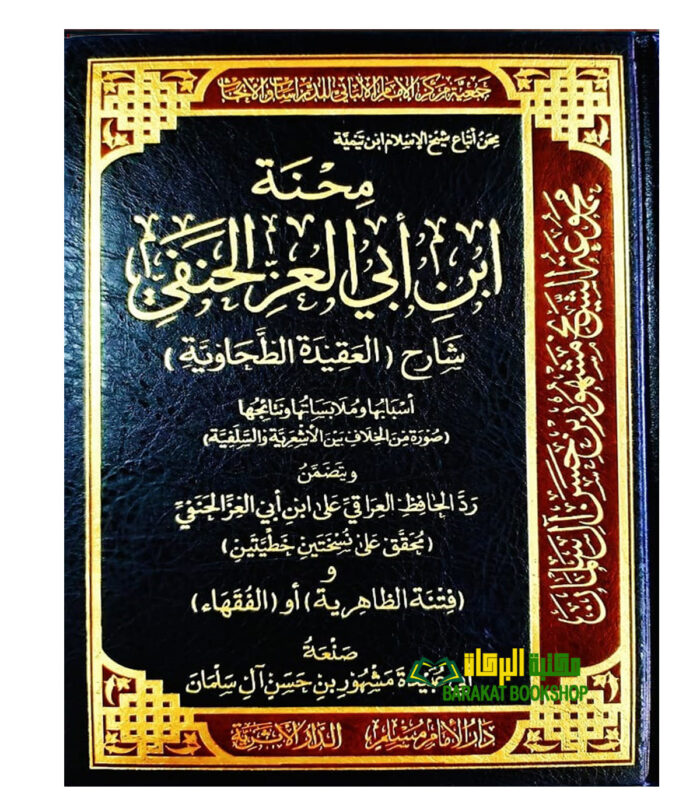 جمعية مركز الإمام الألباني للدراسات والأبحاث
مِحَنُ أتباع شيخ الإسلام ابن تيميّة
مِحْنَة
ابْنِ أَبِي العِزِّ الحَنَفِيّ
شَارِح (العَقِيدَة الطَّحَاوِيَّة)
أَسْبَابُها ومُلَابَسَاتُها ونَتَائِجُها
(صُورَة مِنَ الخِلَاف بَيْنَ الأَشْعَرِيَّة وَالسَّلَفِيَّة)
ويَتَضَمَّنُ
رَدَّ الحَافِظ العِرَاقِيِّ عَلَى ابنِ أَبِي العِزِّ الحَنَفِيِّ
(مُحَقَّق عَلَى نُسْخَتَينِ خَطِّيَّتَينِ)
و
(فِتْنَة الظاهرية) أَو (الفُقَهَاء)
صَنْعَةُ
أبي عُبَيدَةَ مَشْهُور بن حَسَن آل سَلْمَان
دار الإمام مسلم الدار الأثرية
مجموعة الشيخ مشهور بن حسن آل سلمان
مكتبة البركاة
BARAKAT BOOKSHOP